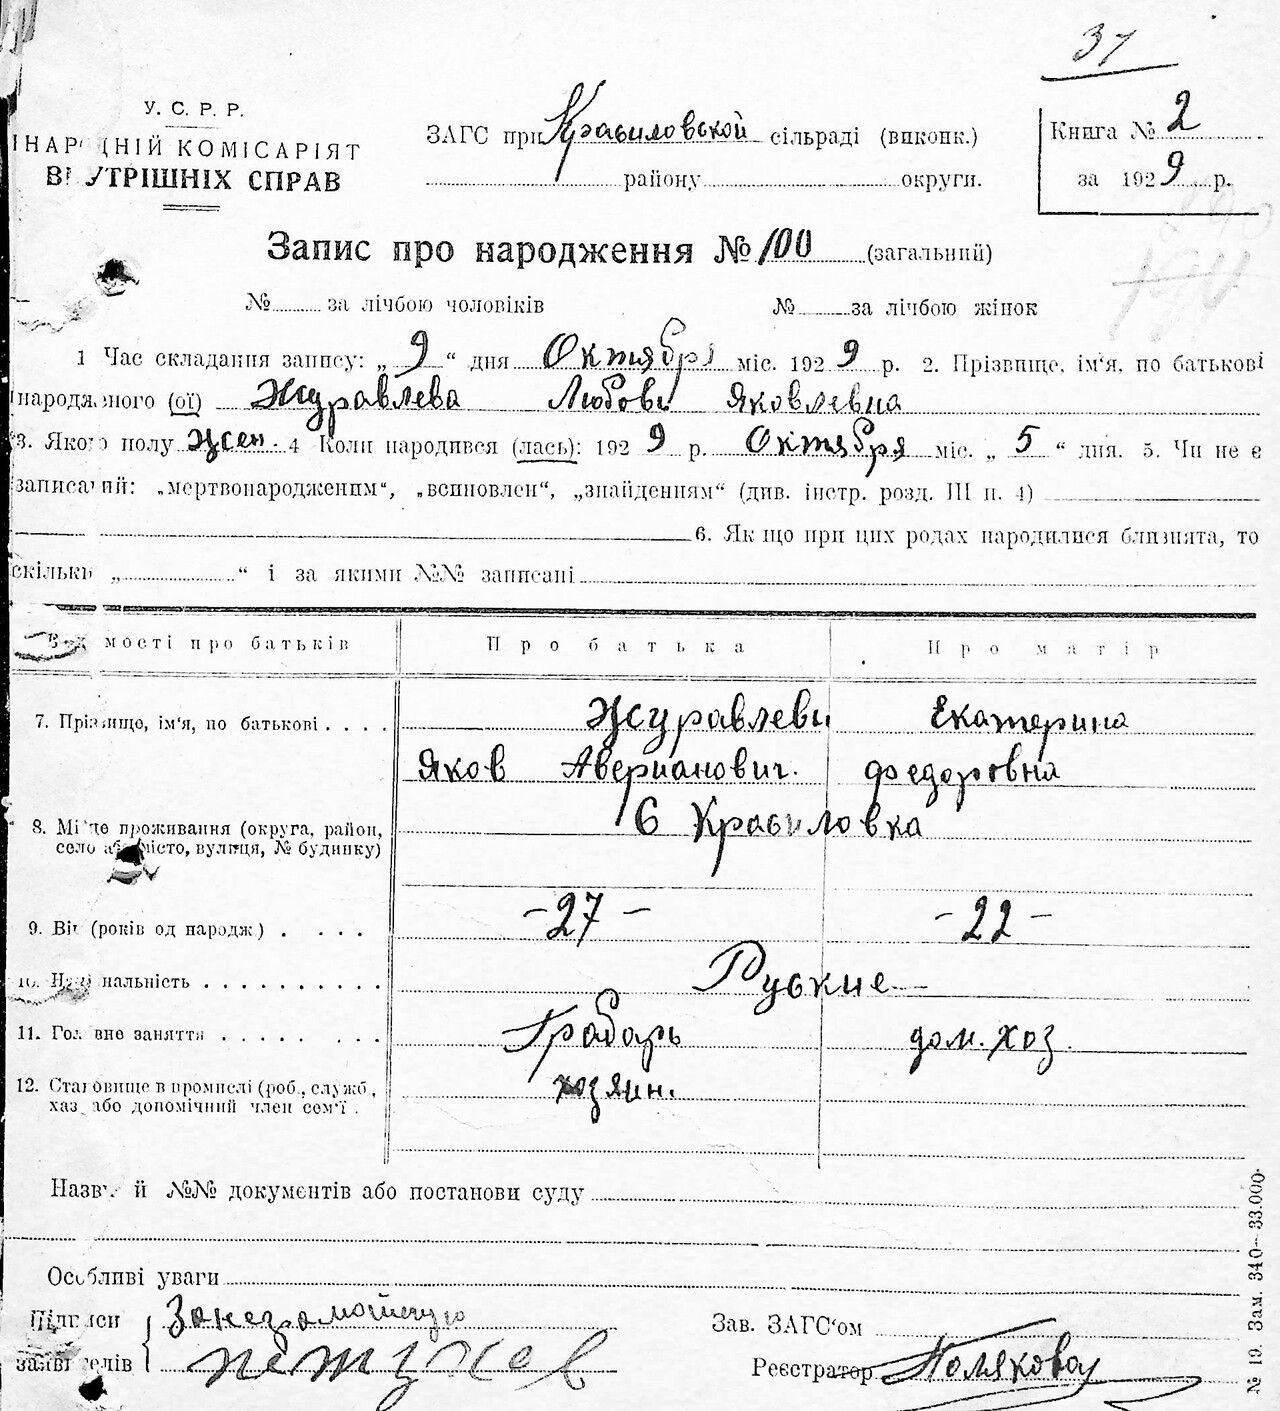 31
У. С. Р. Р.
НАРОДНІЙ КОМІСАРІЯТ
ВНУТРІШНІХ СПРАВ
ЗАГС при Красиловской сільраді (виконк.)
району округи.
Книга № 2
за 1929 р.
Запис про народження № 100 (загальний)
№ за лічбою чоловіків № за лічбою жінок
1 Час складання запису: „ 9 “ дня Октября міс. 1929 р. 2. Прізвище, ім'я, по батькові
народженого (ої) Журавлева Любовь Яковлевна
3. Якого полу жен. 4 Коли народився (лась): 1929 р. Октября міс. „ 5 “ дня. 5. Чи не є
записаний: „мертвонародженим“, „всиновлен“, „знайденням“ (див. інстр. розд. III п. 4)
6. Якщо при цих родах народилися близнята, то
скільки „ “ і за якими №№ записані
Відомості про батьків Про батька Про матір
7. Прізвище, ім'я, по батькові . . . . Журавлевы Екатерина
Яков Аверианович. Федоровна
8. Місце проживання (округа, район, С Красиловка
село або місто, вулиця, № будинку)
9. Вік (років од народж.) . . . . -27- -22-
10. Національність . . . . . . . . . . Руские
11. Головне заняття . . . . . . . . Грабарь дом. хоз.
12. Становище в промислі (роб., служб., хозяин.
хаз. або допомічний член сем'ї .
Назви й №№ документів або постанови суду
Особливі уваги
Підписи За неграмотную Зав. ЗАГС'ом
заявителів Петухов Реєстратор Полякова
№ 19. Зам. 340—33.000.